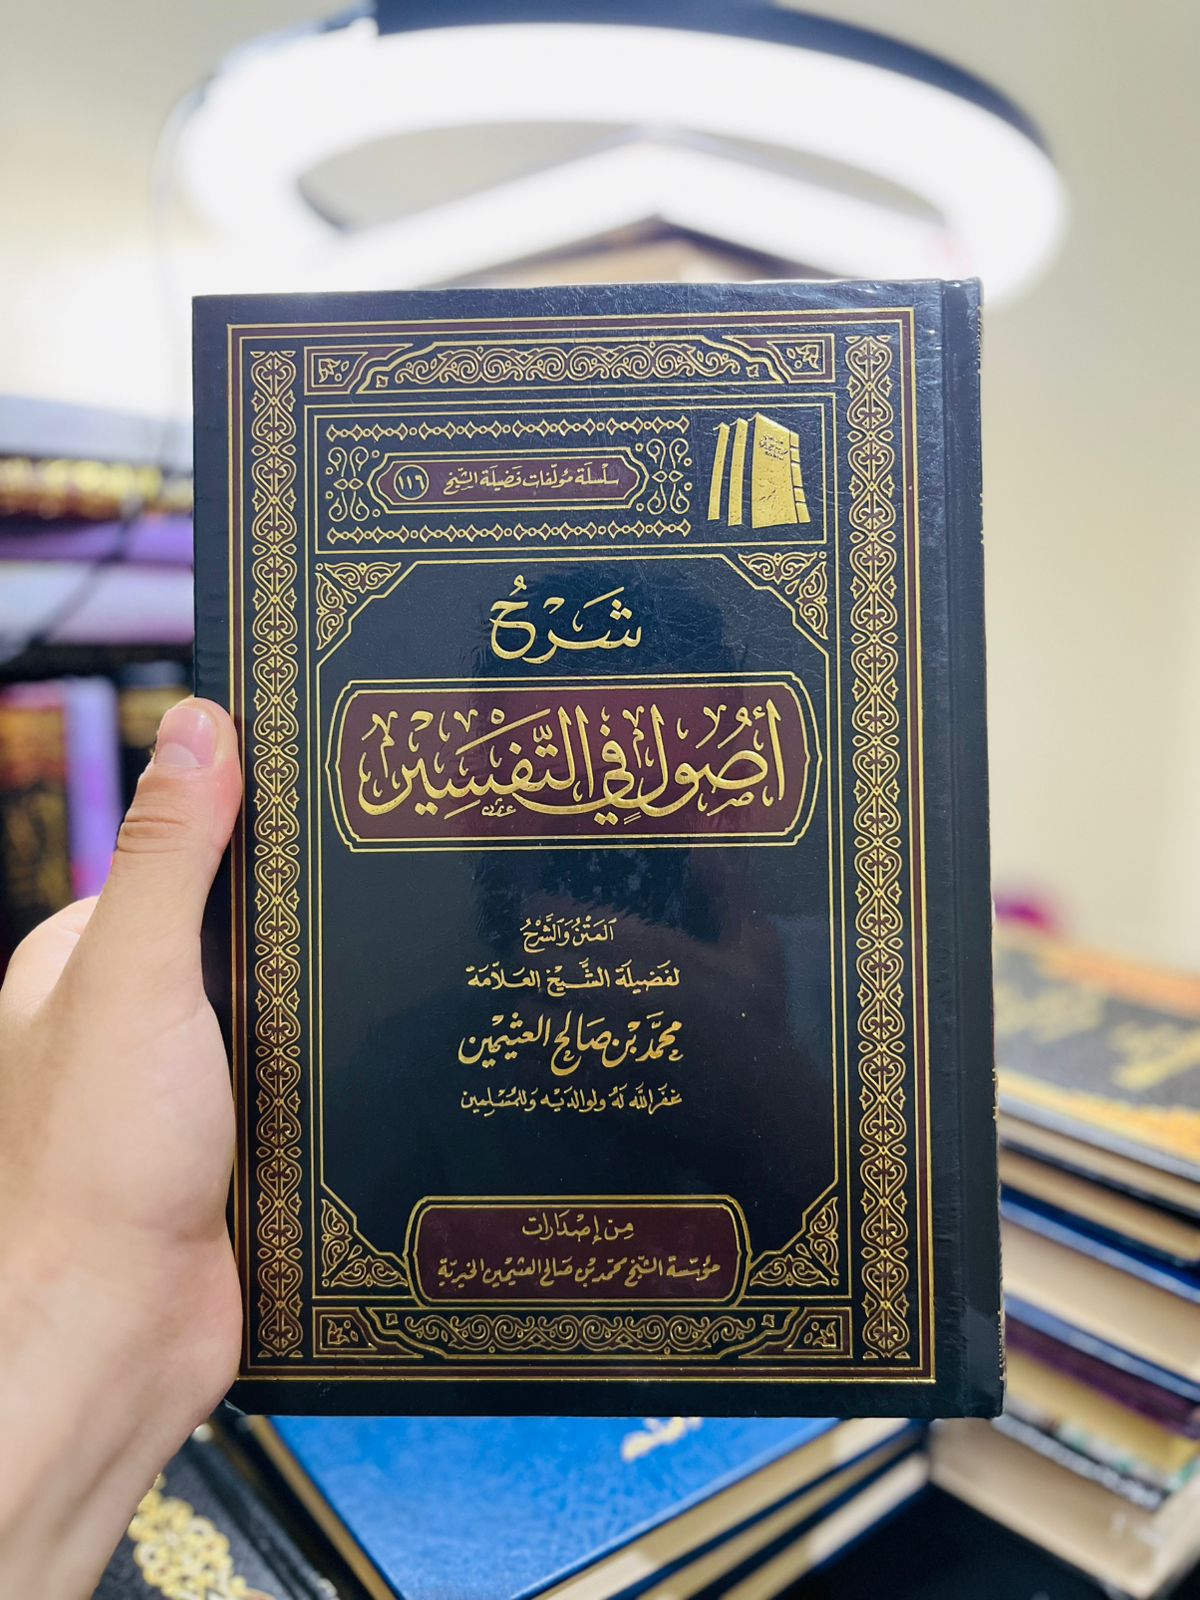 سلسلة مؤلفات فضيلة الشيخ ١١٦
شرح
أصول في التفسير
المتن والشرح
لفضيلة الشيخ العلامة
محمد بن صالح العثيمين
غفر الله له ولوالديه وللمسلمين
من إصدارات
مؤسسة الشيخ محمد بن صالح العثيمين الخيرية